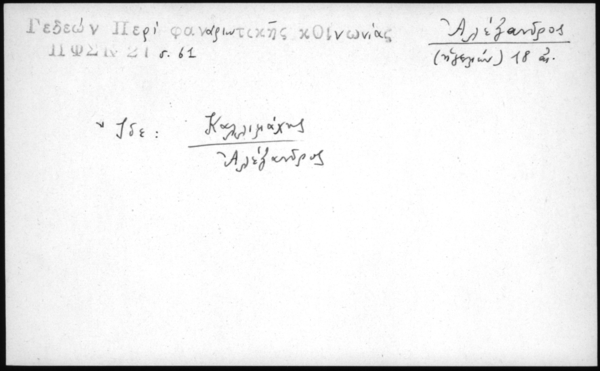 Γεδεών Περί φαναριωτικῆς κΟινωνίας
ΠΦΣΚ 21 σ. 61
Ἀλέξανδρος
(ἡγεμών) 18 αἰ.
Ἰδε: Καλλιμάχης
Ἀλέξανδρος